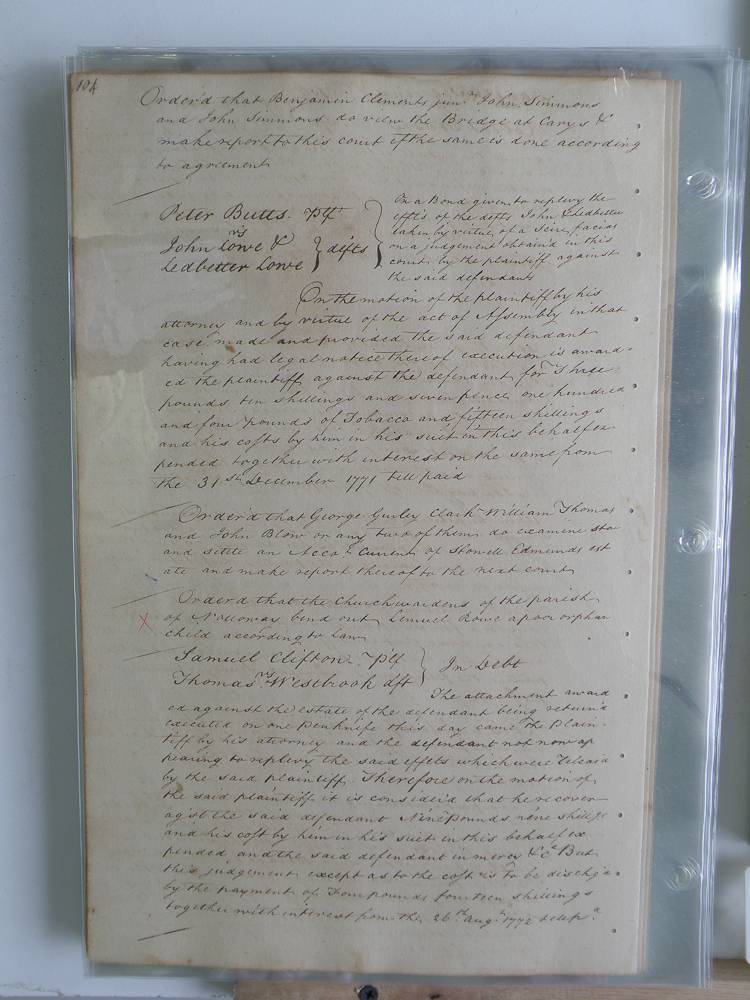 104
Order'd that Benjamin Clements junr John Simmons
and John Simmons do view the Bridge at Carys &
make report to this court if the same is done according
to agriement
Peter Butts. Plf
vs
John Lowe &
Ledbetter Lowe } defts
On a Bond given to replevy the
effts of the defts John & Ledbetter
taken by virtue of a Scire facias
on a judgement obtain'd in this
court by the plaintiff against
the said defendants
On the motion of the plaintiff by his
attorney and by virtue of the act of Assembly in that
case made and provided the said defendant
having had legal notice thereof execution is award-
ed the plaintiff against the defendant for Three
pounds ten shillings and seven pence one hundred
and four pounds of Tobacco and fifteen shillings
and his costs by him in his suit in this behalf ex-
pended together with interest on the same from
the 31st December 1771 till paid
Order'd that George Gurley Clark William Thomas
and John Blow or any two of them do examine sta
and settle an Acco. Current of Stowell Edmunds est
ate and make report thereof to the next court
Order'd that the Churchwardens of the parish
X of Nottoway bind out Lemuel Rowe a poor orphan
child according to Law
Samuel Clifton Plf
vs
Thomas Westbrook dft } In Debt
The attachment award
ed against the estate of the defendant being return'd
executed on one Penknife this day came the Plain-
tiff by his attorney and the defendant not now ap
pearing to replevy the said effets which were
by the said plaintiff. Therefore on the motion of
the said plaintiff it is consider'd that he recover
agst the said defendant Nine pounds nine shills
and his cost by him in his suit in this behalf ex
pended and the said defendant in mercy &c But
this judgement except as to the costs is to be dischgd
by the payment of Four pounds fourteen shillings
together with interest from the 26th Augt 1772